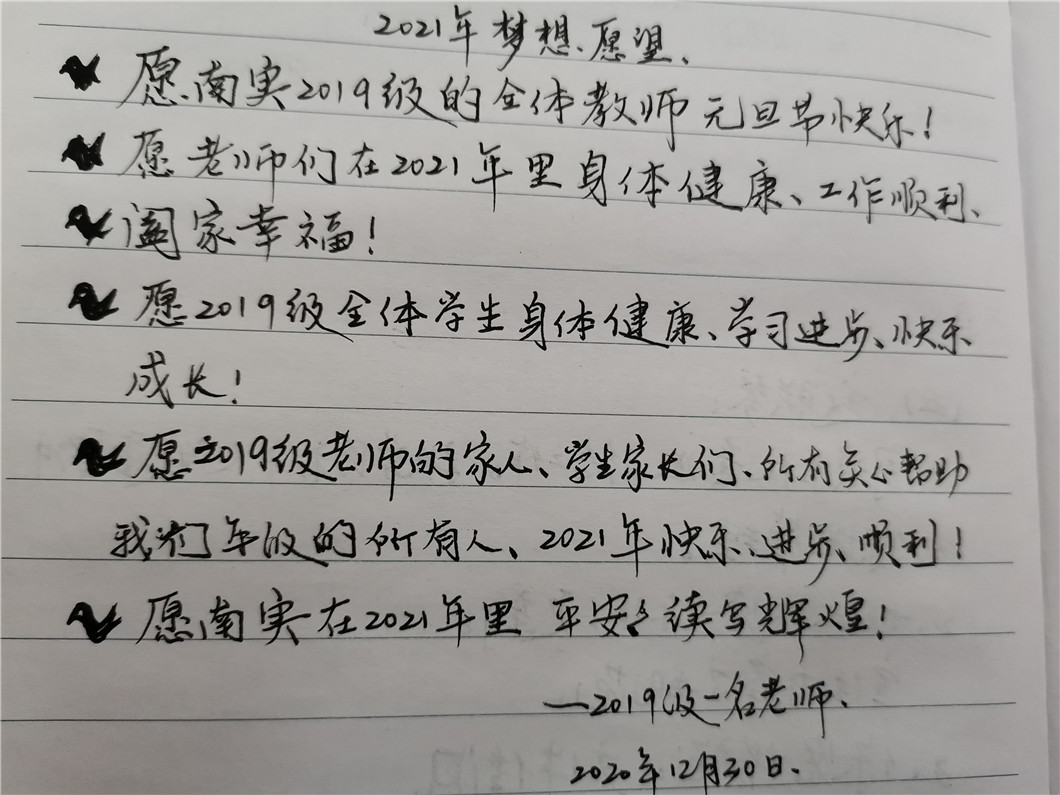 2021年梦想、愿望、
愿南实2019级的全体教师元旦节快乐！
愿老师们在2021年里身体健康、工作顺利、
阖家幸福！
愿2019级全体学生身体健康、学习进步、快乐
成长！
愿2019级老师的家人、学生家长们、所有关心帮助
我们年级的所有人、2021年快乐、进步、顺利！
愿南实在2021年里 平安、续写辉煌！
—2019级一名老师、
2020年12月30日、